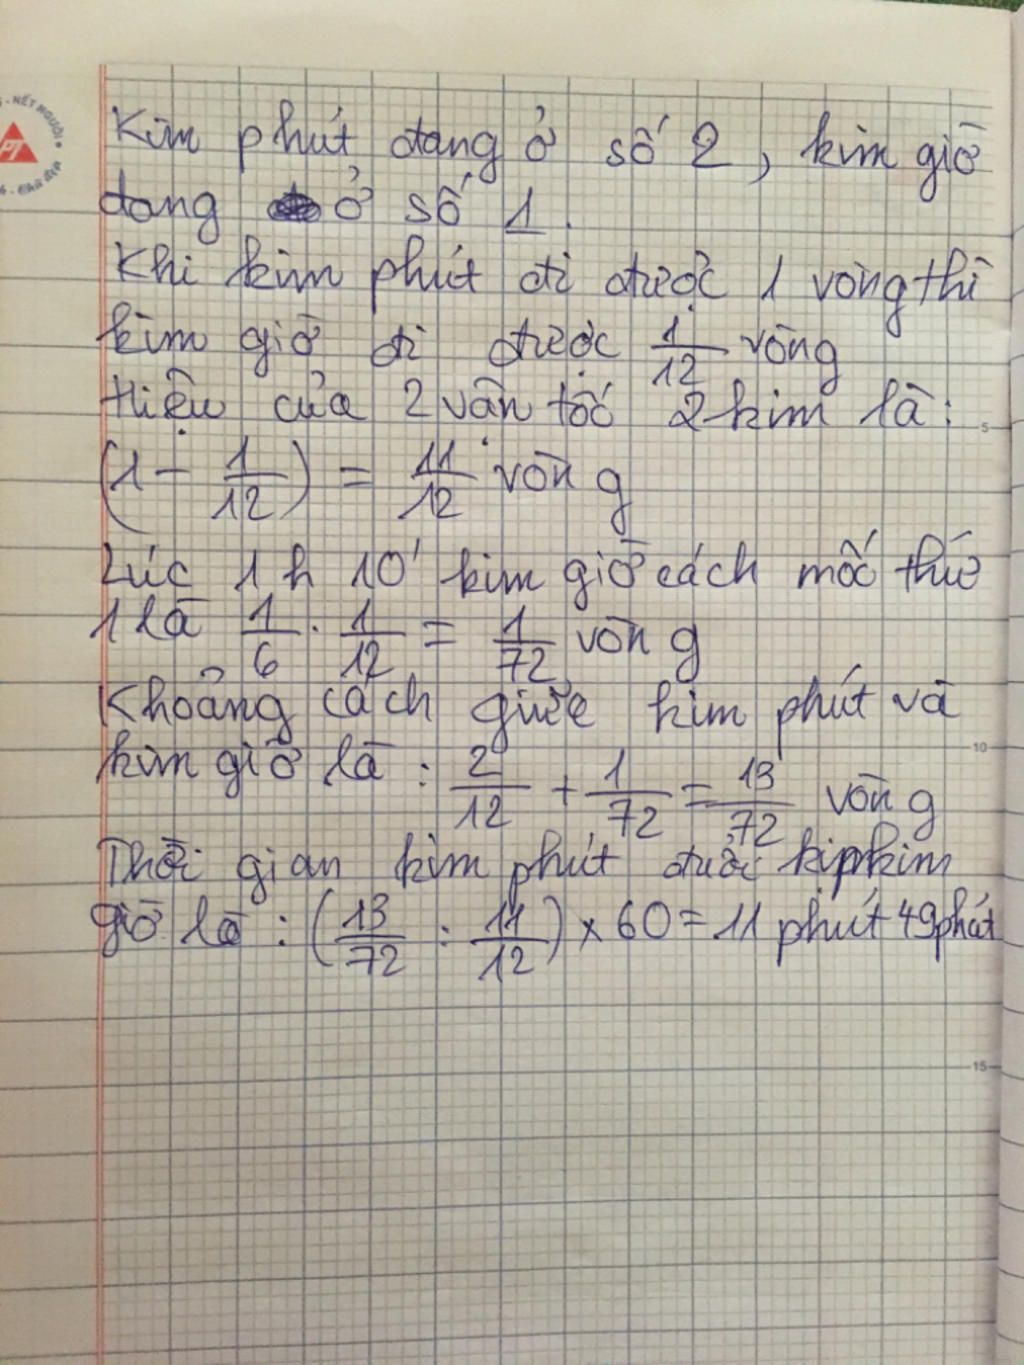 NẾT NGƯỜI
PT
Chữ đẹp
Kim phút đang ở số 2, kim giờ
đang ở số 1.
Khi kim phút đi được 1 vòng thì
kim giờ đi được 1/12 vòng
Hiệu của 2 vận tốc 2 kim là:
(1 - 1/12) = 11/12 vòng
Lúc 1h 10' kim giờ cách mốc thứ
1 là 1/6 . 1/12 = 1/72 vòng
Khoảng cách giữa kim phút và
kim giờ là : 2/12 + 1/72 = 13/72 vòng
Thời gian kim phút đuổi kịp kim
giờ là : (13/72 : 11/12) x 60 = 11 phút 49 phút
5
10
15